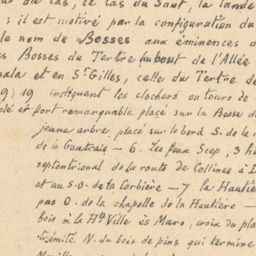 du cas, le cas du Saut, la lande
: il est motivé par la configuration du
le nom de Bosses aux éminences
Bosses du Tertre au bout de l'Allée
et en St Gilles, celle du Tertre de
9) 19 indiquant les clochers ou tours de
et fort remarquable placé sur la Bosse d
jeune arbre, placé sur le bord S. de la
de la Gautrais — 6. Les feux Seep, 3
septentrional de la route de Collinée à
et au S.O. de la Corbière — 7 la Hautière
pas O. de la chapelle de la Hautière —
bois à la Hte Ville ès Mars, croix du
N. du bois de pins qui termine